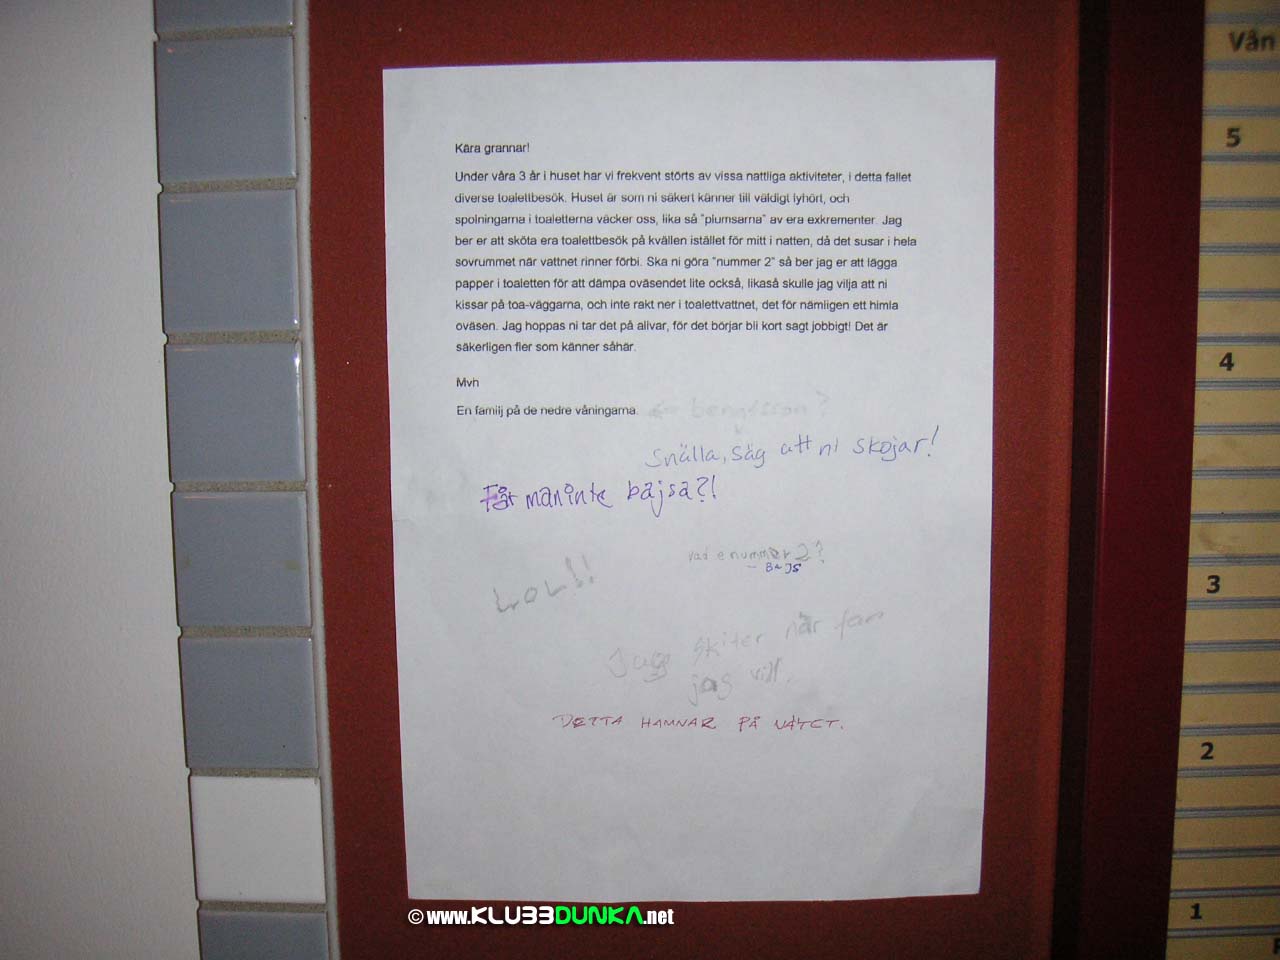 Kära grannar!
Under våra 3 år i huset har vi frekvent störts av vissa nattliga aktiviteter, i detta fallet
diverse toalettbesök. Huset är som ni säkert känner till väldigt lyhört, och
spolningarna i toaletterna väcker oss, lika så "plumsarna" av era exkrementer. Jag
ber er att sköta era toalettbesök på kvällen istället för mitt i natten, då det susar i hela
sovrummet när vattnet rinner förbi. Ska ni göra "nummer 2" så ber jag er att lägga
papper i toaletten för att dämpa oväsendet lite också, likaså skulle jag vilja att ni
kissar på toa-väggarna, och inte rakt ner i toalettvattnet, det för nämligen ett himla
oväsen. Jag hoppas ni tar det på allvar, för det börjar bli kort sagt jobbigt! Det är
säkerligen fler som känner såhär.
Mvh
En familj på de nedre våningarna. <- bengtsson?
Snälla, säg att ni skojar!
Får man inte bajsa?!
vad e nummer 2?
- BAJS
LOL!!
Jag skiter när fan
jag vill.
DETTA HAMNAR PÅ NÄTET.
Vån
5
4
3
2
1
© www.KLUBBDUNKA.net